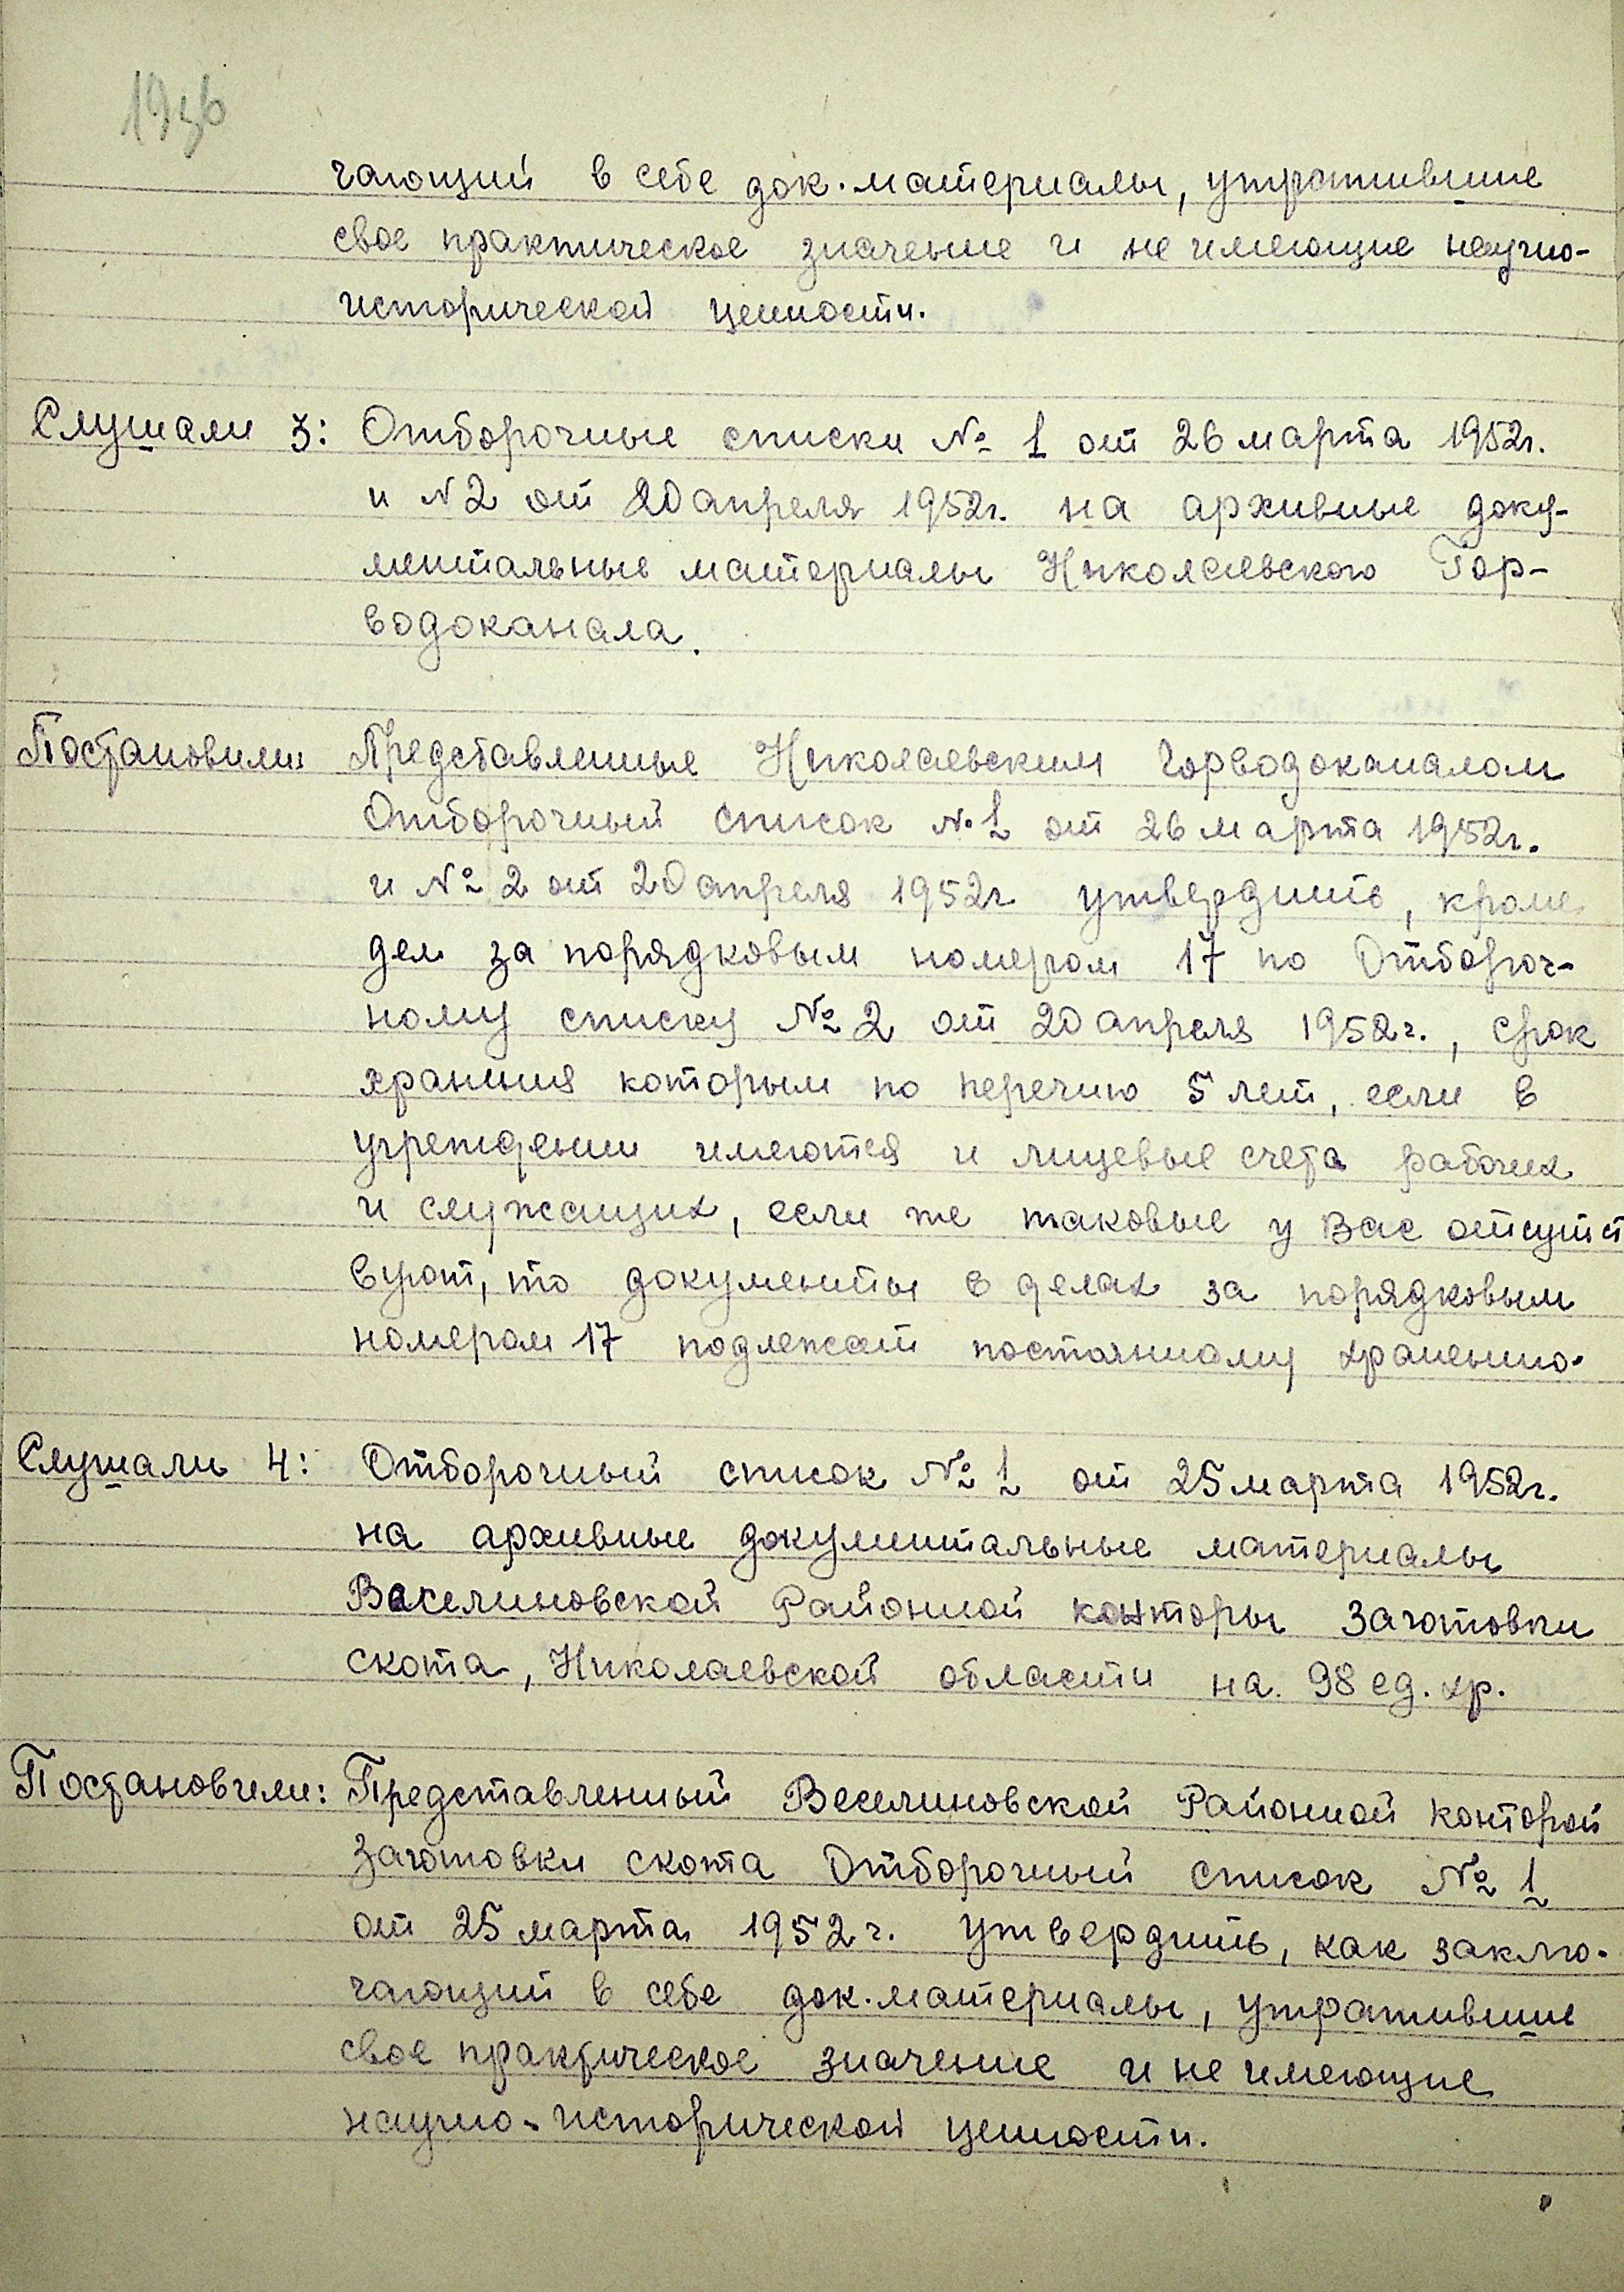 19зб
чающий в себе док. материалы, утратившие
свое практическое значение и не имеющие научно-
исторической ценности.
Слушали 3: Отборочные списки № 1 от 26 марта 1952г.
и N2 от 20 апреля 1952г. на архивные доку-
ментальные материалы Николаевского Гор-
водоканала.
Постановили: Представленные Николаевским Горводоканалом
Отборочный список №1 от 26 марта 1952г.
и № 2 от 20 апреля 1952г утвердить, кроме
дел за порядковым номером 17 по Отбороч-
ному списку № 2 от 20 апреля 1952г., срок
хранния которым по перечню 5 лет, если в
учреждении имеются и лицевые счета рабочих
и служащих, если же таковые у Вас отсутст
вуют, то документы в делах за порядковым
номером 17 подлежат постоянному хранению.
Слушали 4: Отборочный список № 1 от 25 марта 1952г.
на архивные документальные материалы
Веселиновской Районной конторы Заготовки
скота, Николаевской области на 98 ед. хр.
Постановили: Представленный Веселиновской Районной конторой
Заготовки скота Отборочный список № 1
от 25 марта 1952 г. утвердить, как заклю-
чающий в себе док. материалы, утратившие
свое практическое значение и не имеющие
научно-исторической ценности.